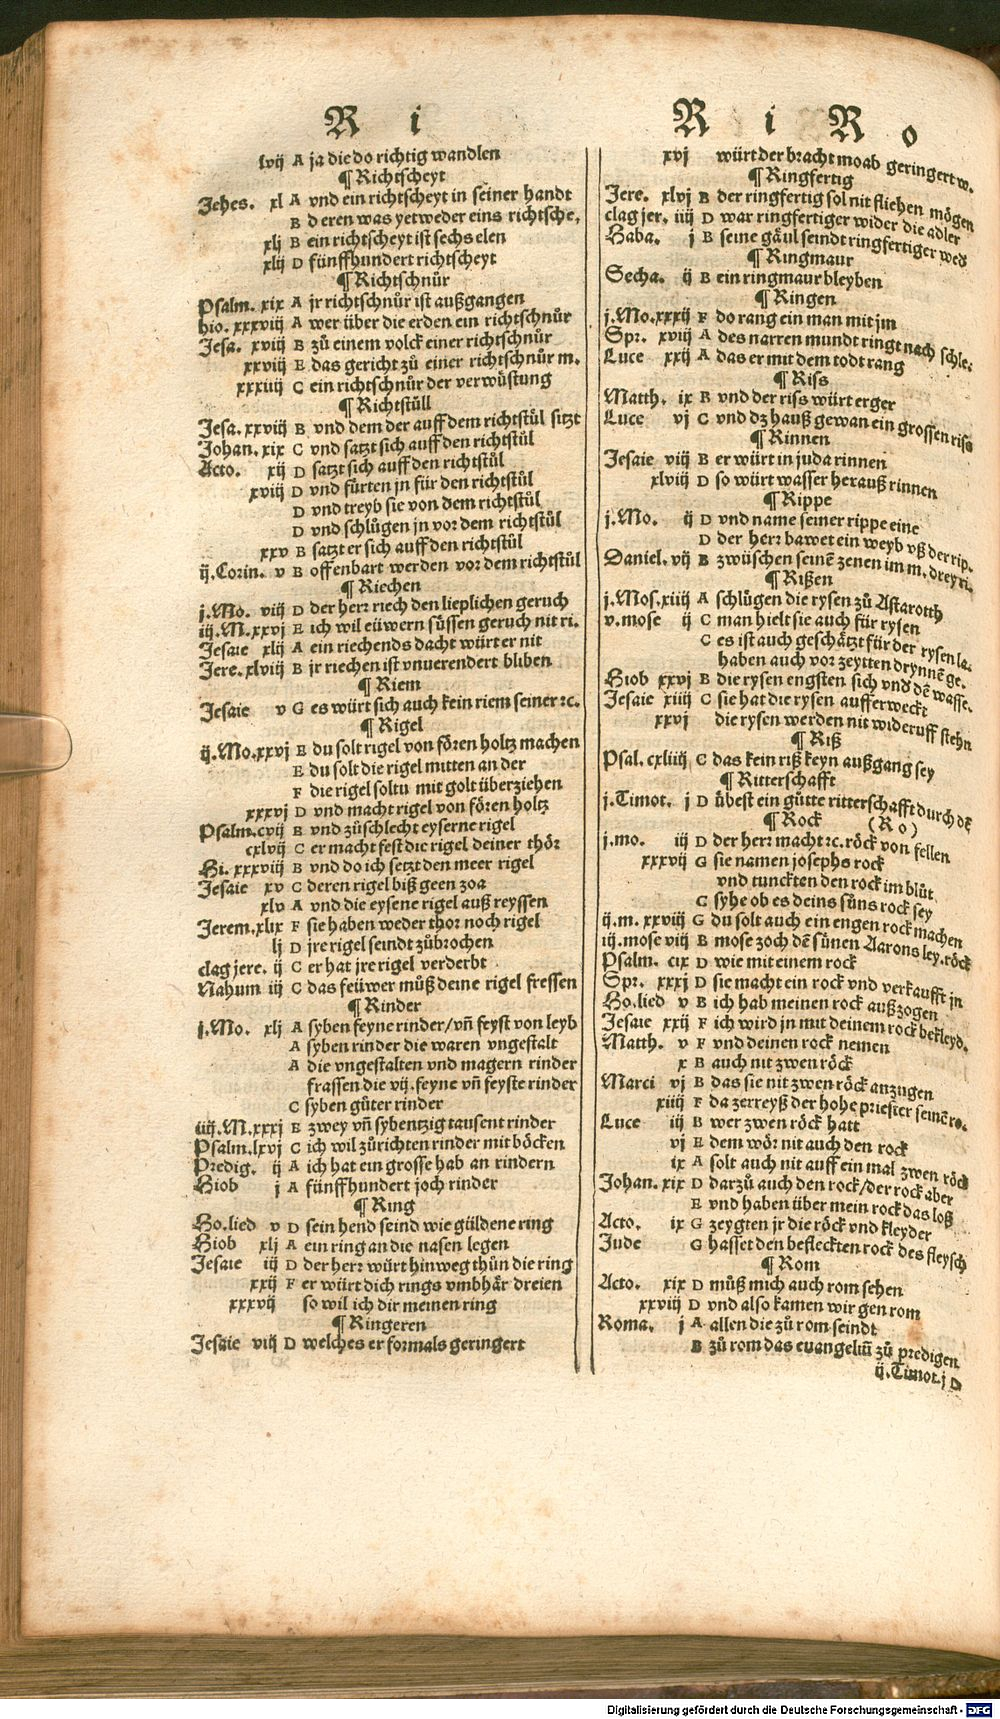 R i
lvij A ja die do richtig wandlen
¶ Richtscheyt
Jehes. xl A vnd ein richtscheyt in seiner handt
B deren was yetweder eins richtsche,
xlj B ein richtscheyt ist sechs elen
xlij D fünffhundert richtscheyt
¶ Richtschnůr
Psalm. xix A jr richtschnůr ist außgangen
hio. xxxviij A wer über die erden ein richtschnůr
Jesa. xviij B zů einem volck einer richtschnůr
xxviij E das gericht zů einer richtschnůr m.
xxxiiij C ein richtschnůr der verwůstung
¶ Richtstůll
Jesa. xxviij B vnd dem der auff dem richtstůl sitzt
Johan. xix C vnd satzt sich auff den richtstůl
Acto. xij D satzt sich auff den richtstůl
xviij D vnd fůrten jn für den richtstůl
D vnd treyb sie von dem richtstůl
D vnd schlůgen jn vor dem richtstůl
xxv B satzt er sich auff den richtstůl
ij. Corin. v B offenbart werden vor dem richtstůl
¶ Riechen
j. Mo. viij D der herr riech den lieplichen geruch
iij. M. xxvj E ich wil eüwern sůssen geruch nit ri.
Jesaie xlij A ein riechends dacht würt er nit
Jere. xlviij B jr riechen ist vnuerendert bliben
¶ Riem
Jesaie v G es würt sich auch kein riem seiner ꝛc.
¶ Rigel
ij. Mo. xxvj E du solt rigel von fören holtz machen
E du solt die rigel mitten an der
F die rigel soltu mit golt überziehen
xxxvj D vnd macht rigel von fören holtz
Psalm. cvij B vnd zůschlecht eyserne rigel
cxlvij C er macht fest die rigel deiner thör
Hi. xxxviij B vnd do ich setzt den meer rigel
Jesaie xv C deren rigel biß geen zoa
xlv A vnd die eysene rigel auß reyssen
Jerem. xlix F sie haben weder thor noch rigel
lj D jre rigel seindt zůbrochen
clag jere. ij C er hat jre rigel verderbt
Nahum iij C das feüwer můß deine rigel fressen
¶ Rinder
j. Mo. xlj A syben feyne rinder / vñ feyst von leyb
A syben rinder die waren vngestalt
A die vngestalten vnd magern rinder
frassen die vij. feyne vñ feyste rinder
C syben gůter rinder
iiij. M. xxxj E zwey vñ sybentzig tausent rinder
Psalm. lxvj C ich wil zůrichten rinder mit böcken
Predig. ij A ich hat ein grosse hab an rindern
Hiob j A fünffhundert joch rinder
¶ Ring
Ho. lied v D sein hend seind wie güldene ring
Hiob xlj A ein ring an die nasen legen
Jesaie iij D der herr würt hinweg thůn die ring
xxij F er würt dich rings vmbhär dreien
xxxvij so wil ich dir meinen ring
¶ Ringeren
Jesaie viij D welches er formals geringert
R i R o
xvj würt der bracht moab geringert w.
¶ Ringfertig
Jere. xlvj B der ringfertig sol nit fliehen mögen
clag jer. iiij D war ringfertiger wider die adler
Haba. j B seine gäul seindt ringfertiger wed
¶ Ringmaur
Secha. ij B ein ringmaur bleyben
¶ Ringen
j. Mo. xxxij F do rang ein man mit jm
Spr. xviij A des narren mundt ringt nach schle.
Luce xxij A das er mit dem todt rang
¶ Riss
Matth. ix B vnd der riss würt erger
Luce vj C vnd dz hauß gewan ein grossen riss
¶ Rinnen
Jesaie viij B er würt in juda rinnen
xlviij D so würt wasser herauß rinnen
¶ Rippe
j. Mo. ij D vnd name seiner rippe eine
D der herr bawet ein weyb vß der rip.
Daniel. vij B zwüschen seinē zenen im m. drey ri.
¶ Rißen
j. Mos. xiiij A schlůgen die rysen zů Astarotth
v. mose ij C man hielt sie auch für rysen
C es ist auch geschätzt für der rysen la.
haben auch vor zeytten drynnē ge.
Hiob xxvj B die rysen engsten sich vnd dē wasse.
Jesaie xiiij C sie hat die rysen aufferweckt
xxvj die rysen werden nit wideruff stehn
¶ Riß
Psal. cxliiij C das kein riß keyn außgang sey
¶ Ritterschafft
j. Timot. j D übest ein gůtte ritterschafft durch dē
¶ Rock (R o)
j. mo. iij D der herr macht ꝛc. röck von fellen
xxxvij G sie namen josephs rock
vnd tunckten den rock im blůt
G syhe ob es deins sůns rock sey
ij. m. xxviij G du solt auch ein engen rock machen
iij. mose viij B mose zoch dē sůnen Aarons ley. röck
Psalm. cix D wie mit einem rock
Spr. xxxj D sie macht ein rock vnd verkaufft in
Ho. lied v B ich hab meinen rock außzogen
Jesaie xxij F ich wird jn mit deinem rock bekleyd.
Matth. v F vnd deinen rock nemen
x B auch nit zwen röck
Marci vj B das sie nit zwen röck anzugen
xiiij F da zerreyß der hohe priester seinē ro.
Luce iij B wer zwen röck hatt
vj E dem wör nit auch den rock
ix A solt auch nit auff ein mal zwen röck
Johan. xix D darzů auch den rock / der rock aber
E vnd haben über mein rock das loß
Acto. ix G zeygten jr die röck vnd kleyder
Jude G hasset den befleckten rock des fleysch
¶ Rom
Acto. xix D můß mich auch rom sehen
xxviij D vnd also kamen wir gen rom
Roma. j A allen die zů rom seindt
B zů rom das euangeliū zů predigen
ij. Timot. j D
Digitalisierung gefördert durch die Deutsche Forschungsgemeinschaft - DFG